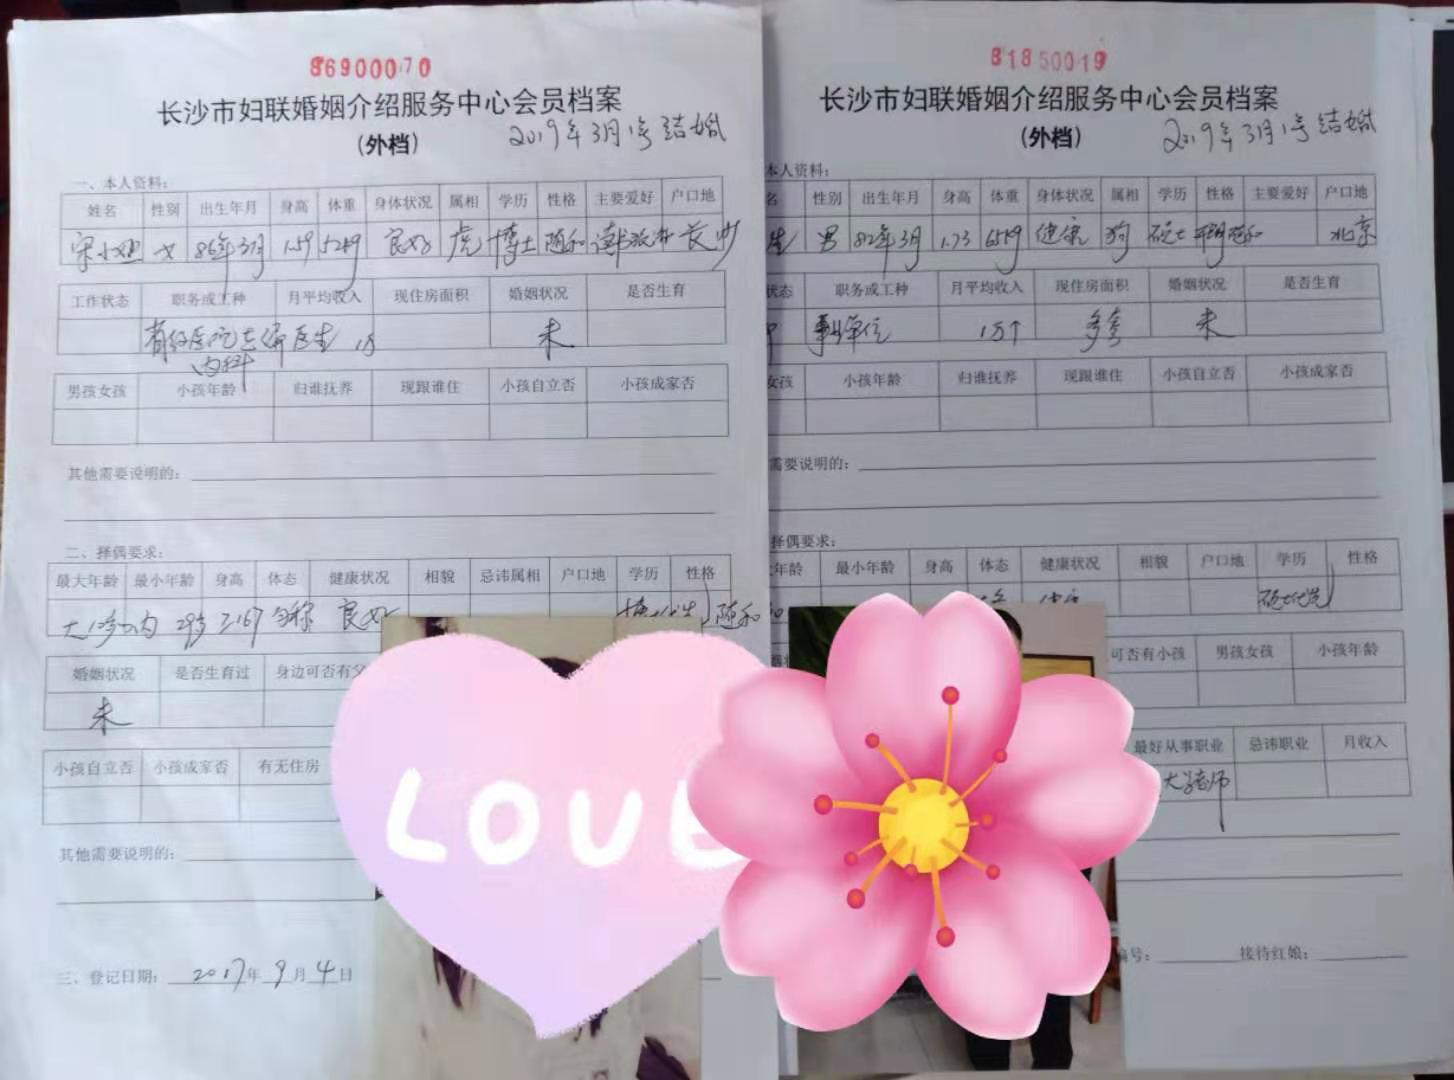 86900070
长沙市妇联婚姻介绍服务中心会员档案
(外档)
2019年3月1号结婚
一、本人资料:
姓名 性别 出生年月 身高 体重 身体状况 属相 学历 性格 主要爱好 户口地
宋小姐 女 86年3月 1.59 52kg 良好 虎 博士 随和 长沙
工作状态 职务或工种 月平均收入 现住房面积 婚姻状况 是否生育
医生 未
内科
男孩女孩 小孩年龄 归谁抚养 现跟谁住 小孩自立否 小孩成家否
其他需要说明的:
二、择偶要求:
最大年龄 最小年龄 身高 体态 健康状况 相貌 忌讳属相 户口地 学历 性格
大10岁以内 匀称 良好 随和
婚姻状况 是否生育过 身边可否有父
未
小孩自立否 小孩成家否 有无住房
其他需要说明的:
三、登记日期: 2017年9月4日
LOVE
81850019
长沙市妇联婚姻介绍服务中心会员档案
(外档)
2019年3月1号结婚
本人资料:
名 性别 出生年月 身高 体重 身体状况 属相 学历 性格 主要爱好 户口地
生 男 82年3月 1.73 65kg 健康 狗 硕士 开朗随和 北京
状态 职务或工种 月平均收入 现住房面积 婚姻状况 是否生育
事业单位 1万↑ 多套 未
女孩 小孩年龄 归谁抚养 现跟谁住 小孩自立否 小孩成家否
需要说明的:
择偶要求:
年龄 最小年龄 身高 体态 健康状况 相貌 户口地 学历 性格
可否有小孩 男孩女孩 小孩年龄
最好从事职业 忌讳职业 月收入
大学老师
编号: 接待红娘: